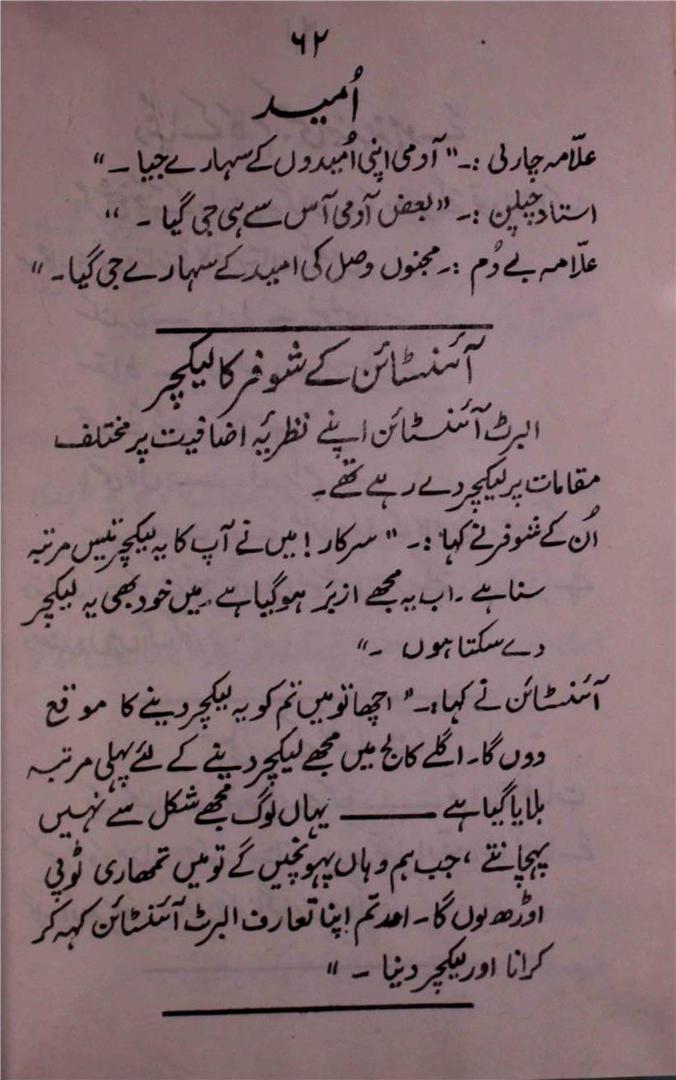 ۶۲
اُمید
علّامہ چارلی :۔ "آدمی اپنی اُمیدوں کے سہارے جیا ۔"
استاد چپلن :۔ "بعض آدمی آس سے ہی جی گیا ۔ "
علّامہ بے دُم :۔ مجنوں وصل کی امید کے سہارے جی گیا ۔"
آئنسٹائن کے شوفر کا لیکچر
البرٹ آئنسٹائن اپنے نظریۂ اضافیت پر مختلف
مقامات پر لیکچر دے رہے تھے ۔
اُن کے شوفر نے کہا :۔ "سرکار! میں نے آپ کا یہ لیکچر تیس مرتبہ
سنا ہے ۔ اب یہ مجھے ازبر ہو گیا ہے ۔ میں خود بھی یہ لیکچر
دے سکتا ہوں ۔"
آئنسٹائن نے کہا :۔ "اچھا تو میں تم کو یہ لیکچر دینے کا موقع
دوں گا ۔ اگلے کالج میں مجھے لیکچر دینے کے لئے پہلی مرتبہ
بلایا گیا ہے ——— یہاں لوگ مجھے شکل سے نہیں
پہچانتے ، جب ہم وہاں پہونچیں گے تو میں تمھاری ٹوپی
اوڑھ لوں گا ۔ اور تم اپنا تعارف البرٹ آئنسٹائن کہہ کر
کرانا اور لیکچر دینا ۔ "